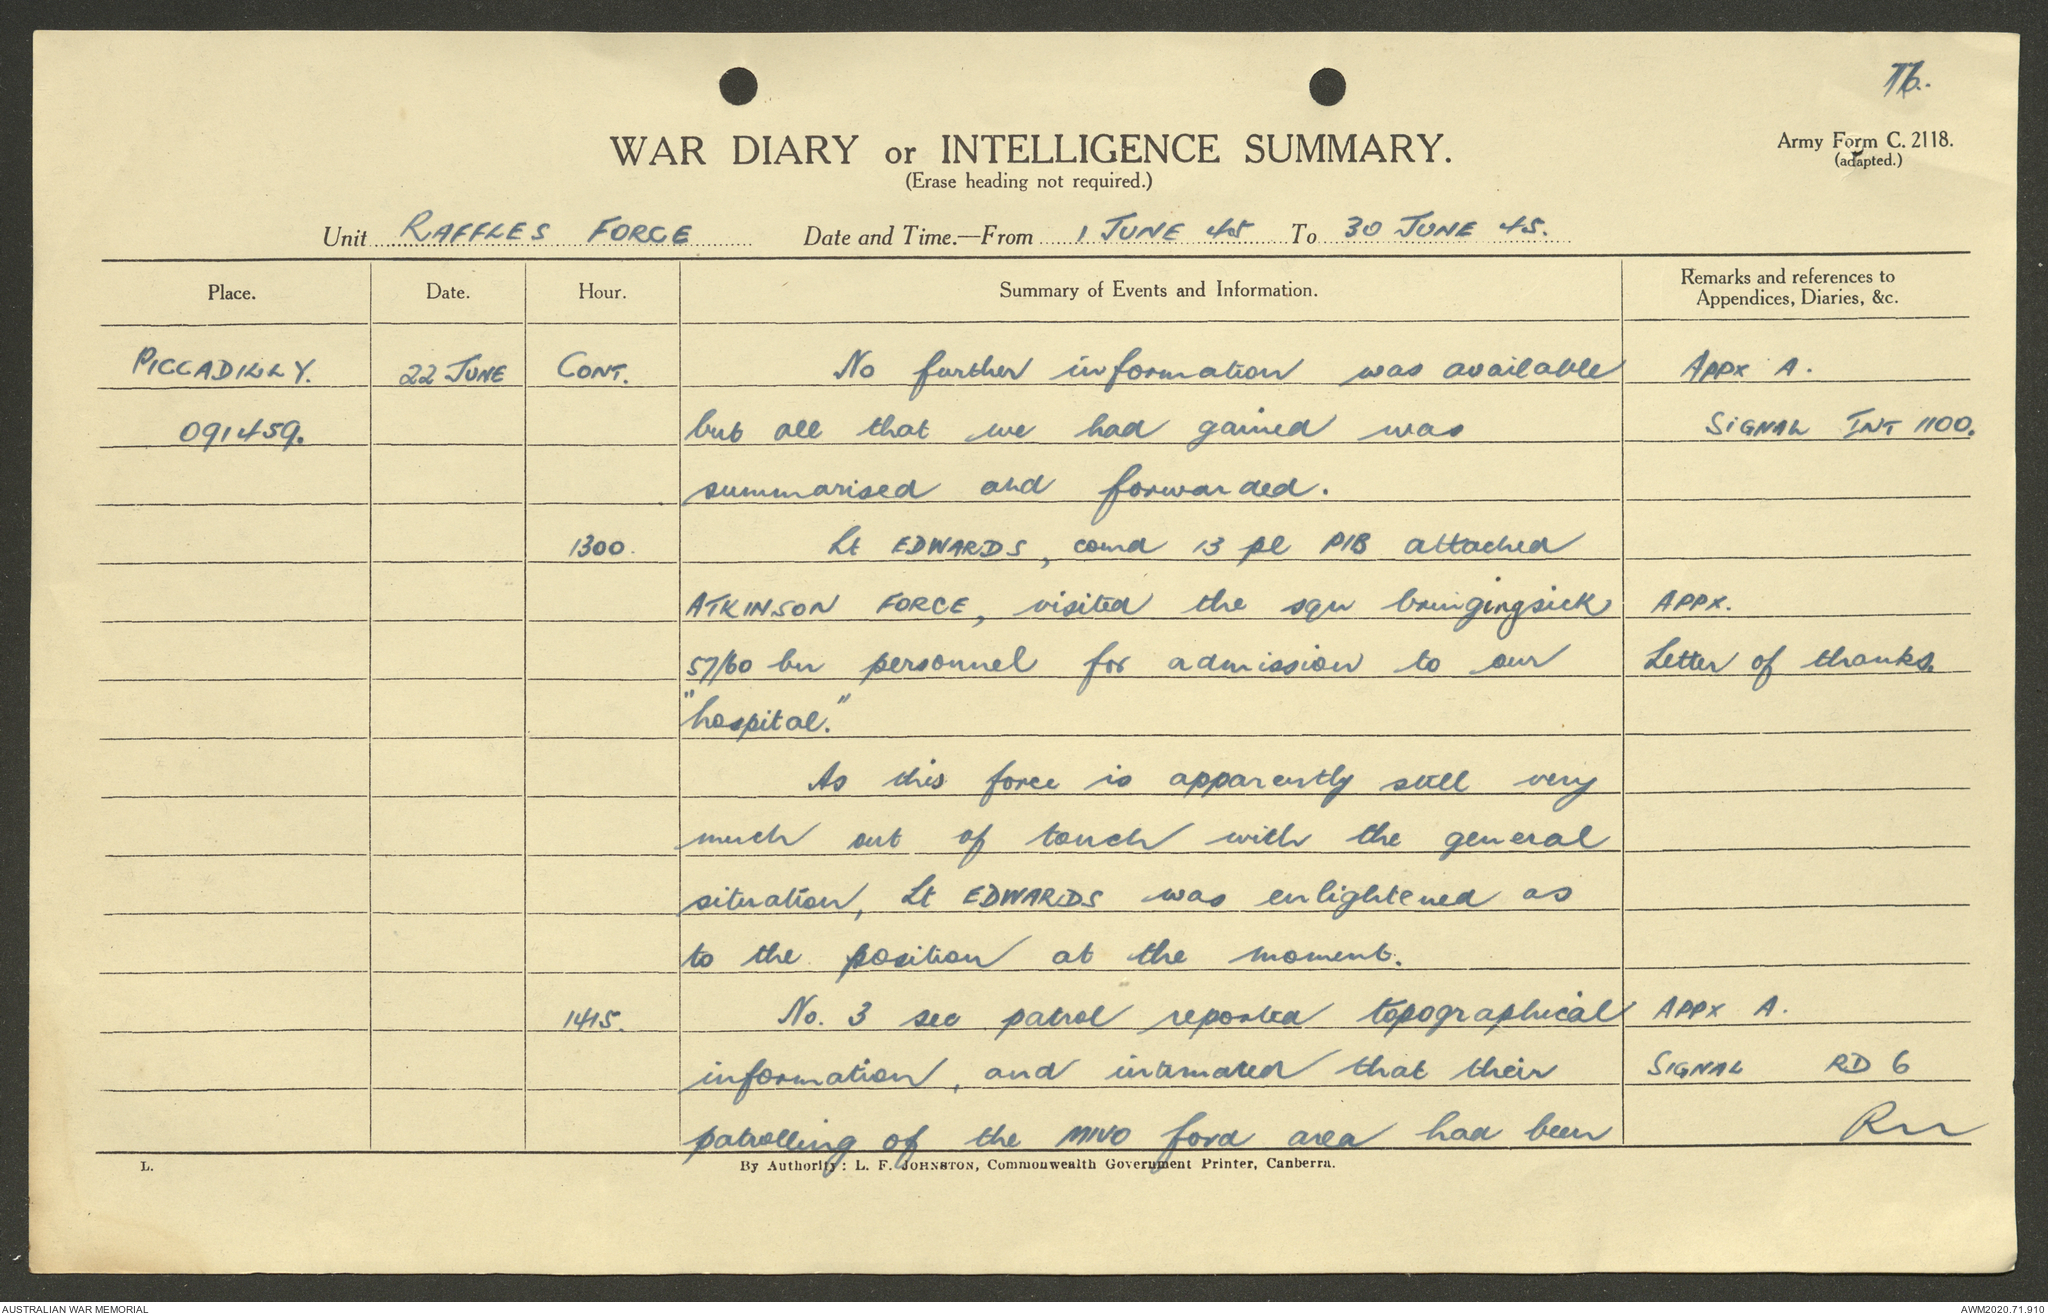 76.
WAR DIARY or INTELLIGENCE SUMMARY.
Army Form C. 2118.
(adapted.)
(Erase heading not required.)
Unit RAFFLES FORCE Date and Time.—From 1 JUNE 45 To 30 JUNE 45.
Place. Date. Hour. Summary of Events and Information. Remarks and references to
Appendices, Diaries, &c.
PICCADILLY. 22 JUNE CONT. No further information was available APPX A.
091459. but all that we had gained was SIGNAL INT 1100.
summarised and forwarded.
1300. Lt EDWARDS, comd 13 pl PIB attached
ATKINSON FORCE, visited the sqn bringing sick APPX.
57/60 bn personnel for admission to our Letter of thanks.
"hospital."
As this force is apparently still very
much out of touch with the general
situation, Lt EDWARDS was enlightened as
to the position at the moment.
1415. No. 3 sec patrol reported topographical APPX A.
information, and intimated that their SIGNAL RD 6
patrolling of the MIVO ford area had been
L. By Authority: L. F. JOHNSTON, Commonwealth Government Printer, Canberra.
AUSTRALIAN WAR MEMORIAL AWM2020.71.910